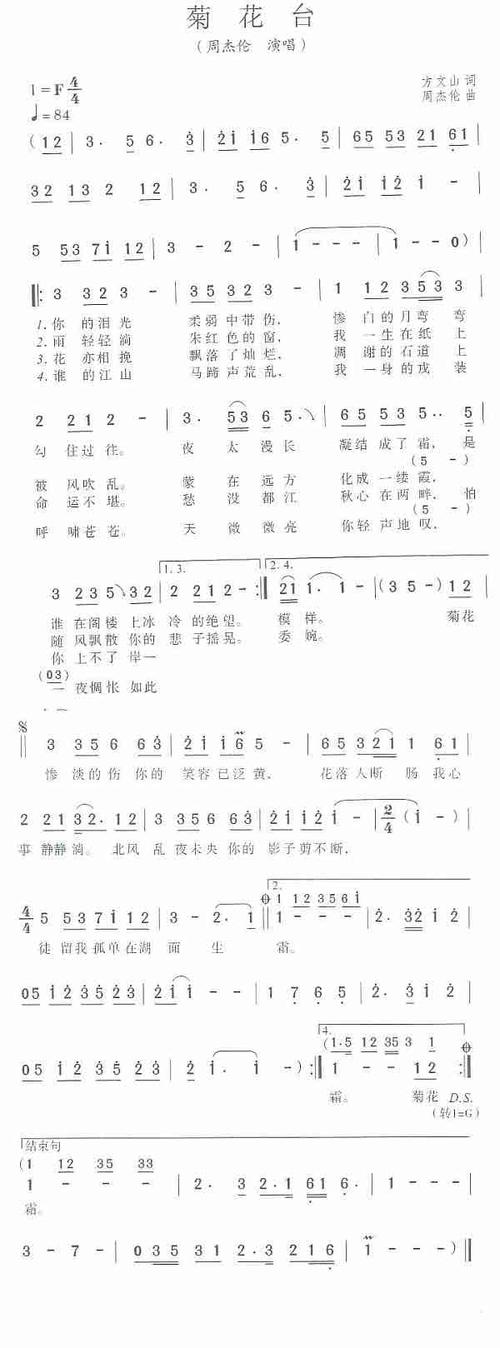 菊花台
（周杰伦 演唱）
1=F 4/4
♩=84
方文山 词
周杰伦 曲
(12 | 3· 5 6· 3 | 2i i6 5· 5 | 65 53 21 61 |
32 13 2 12 | 3· 5 6· 3 | 2i i2 i - |
5 53 7i 12 | 3 - 2 - | 1 - - - | 1 - - 0) |
‖: 3 3 23 - | 35 323 - | 1 12 353 3 |
1.你 的泪光 柔弱中带伤， 惨 白的月弯 弯
2.雨 轻轻淌 朱红色的窗， 我 一生在纸 上
3.花 亦相挽 飘落了灿烂， 凋 谢的石道 上
4.谁 的江山 马蹄声荒乱， 我 一身的戎 装
2 212 - | 3· 53 6 5· | 65 535 5·· 5 |
勾 住过 往。 夜 太 漫长 凝结 成了霜， 是
(5 -)
被 风吹 乱。 蒙 在 远方 化成 一缕霞，
命 运不 堪。 愁 没 都江 秋心 在两畔， 怕
(5 -)
呼 啸苍 苍。 天 微微亮 你轻 声地叹，
1.3.
2.4.
3 235 32 | 2 212 - :‖ 21 1· 1 - | (35 -) 12 |
谁 在阁楼 上冰 冷的绝望。 模 样。 菊花
随 风飘散 你的 悲子摇晃。 委 婉。
你 上不了 岸一
(03)
一 夜惆怅 如此
3 356 63 | 2i i6 5 - | 65 321 1 61 |
惨 淡的伤 你的 笑容已泛黄， 花落人断 肠 我心
2 21 32· 12 | 3 356 63 | 2i i2 i - | 2/4 (i -) |
事 静静淌。 北风 乱 夜未央 你的 影子剪不断，
2.
1 123561
4/4 5 537i 12 | 3 - 2· 1 ‖ 1 - - - | 2· 32 i2 |
徒 留我孤单在湖 面 生 霜。
05 i2 35 23 | 2i i - - | 1 7 6 5 | 2· 3 i 2 |
4.
(1·5 12 35 3 1
05 i2 35 23 | 2· i· i - ) :‖ 1 - - 12 :‖
霜。 菊花 D.S.
(转1=G)
结束句
(1 12 35 33
1 - - - | 2· 3 2·1 61 6· | 1 - - - |
霜。
3 - 7 - | 035 31 2·3 216 | 1 - - ) ‖